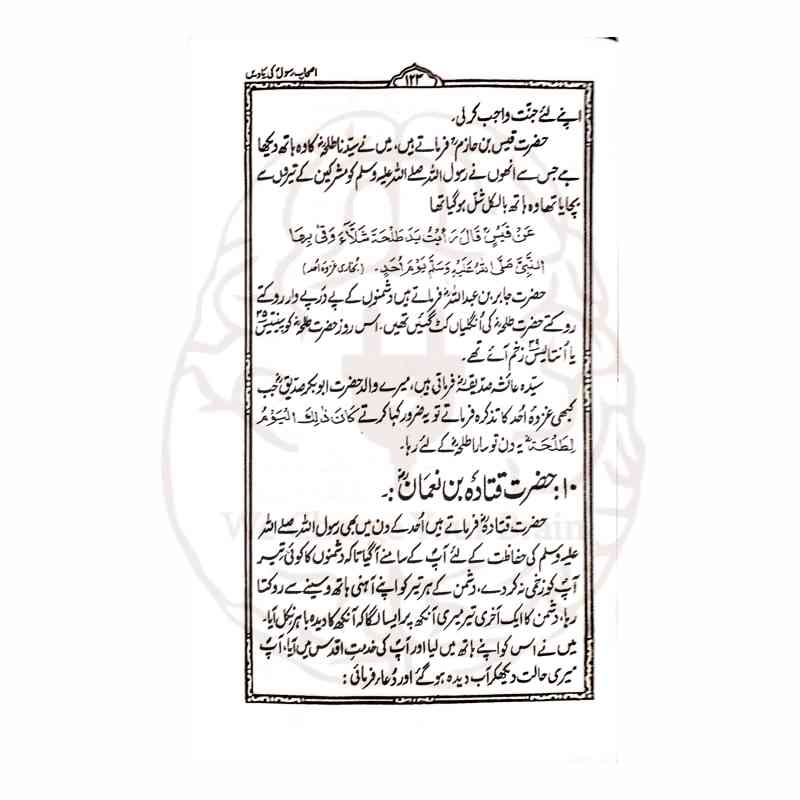 اصحابِ رسولؐ کی یادیں
۱۲۳
اپنے لئے جنّت واجب کرلی۔
حضرت قیس بن حازمؒ فرماتے ہیں، میں نے سیّدنا طلحہؓ کا وہ ہاتھ دیکھا
ہے جس سے انھوں نے رسول اللہ صلے اللہ علیہ وسلم کو مشرکین کے تیروں سے
بچایا تھا وہ ہاتھ بالکل شل ہوگیا تھا
عَنْ قَيْسٍ قَالَ رَأَيْتُ يَدَ طَلْحَةَ شَلَّاءَ وَقٰى بِهَا
النَّبِيَّ صَلَّى اللهُ عَلَيْهِ وَسَلَّمَ يَوْمَ اُحُدٍ۔ (بخاری غزوہ اُحد)
حضرت جابر بن عبداللہؓ فرماتے ہیں دشمنوں کے پے درپے وار روکتے
روکتے حضرت طلحہؓ کی اُنگلیاں کٹ گئیں تھیں۔ اس روز حضرت طلحہؓ کو پینتیس ۳۵
یا اُنتالیس ۳۹ زخم آئے تھے۔
سیّدہ عائشہ صدیقہؓ فرماتی ہیں، میرے والد حضرت ابوبکر صدیقؓ جب
کبھی غزوۂ اُحد کا تذکرہ فرماتے تو یہ ضرور کہا کرتے كَانَ ذٰلِكَ الْيَوْمُ
لِطَلْحَةَ یہ دن تو سارا طلحہؓ کے لئے رہا۔
۱۰: حضرت قتادہ بن نعمانؓ :۔
حضرت قتادہؓ فرماتے ہیں اُحد کے دن میں بھی رسول اللہ صلے اللہ
علیہ وسلم کی حفاظت کے لئے آپؐ کے سامنے آگیا تاکہ دشمنوں کا کوئی تیر
آپؐ کو زخمی نہ کردے، دشمن کے ہر تیر کو اپنے آہنی ہاتھ وسینے سے روکتا
رہا، دشمن کا ایک آخری تیر میری آنکھ پر ایسا لگا کہ آنکھ کا دیدہ باہر نکل آیا۔
میں نے اس کو اپنے ہاتھ میں لیا اور آپؐ کی خدمتِ اقدس میں آیا، آپؐ
میری حالت دیکھکر آب دیدہ ہوگئے اور دُعاء فرمائی :